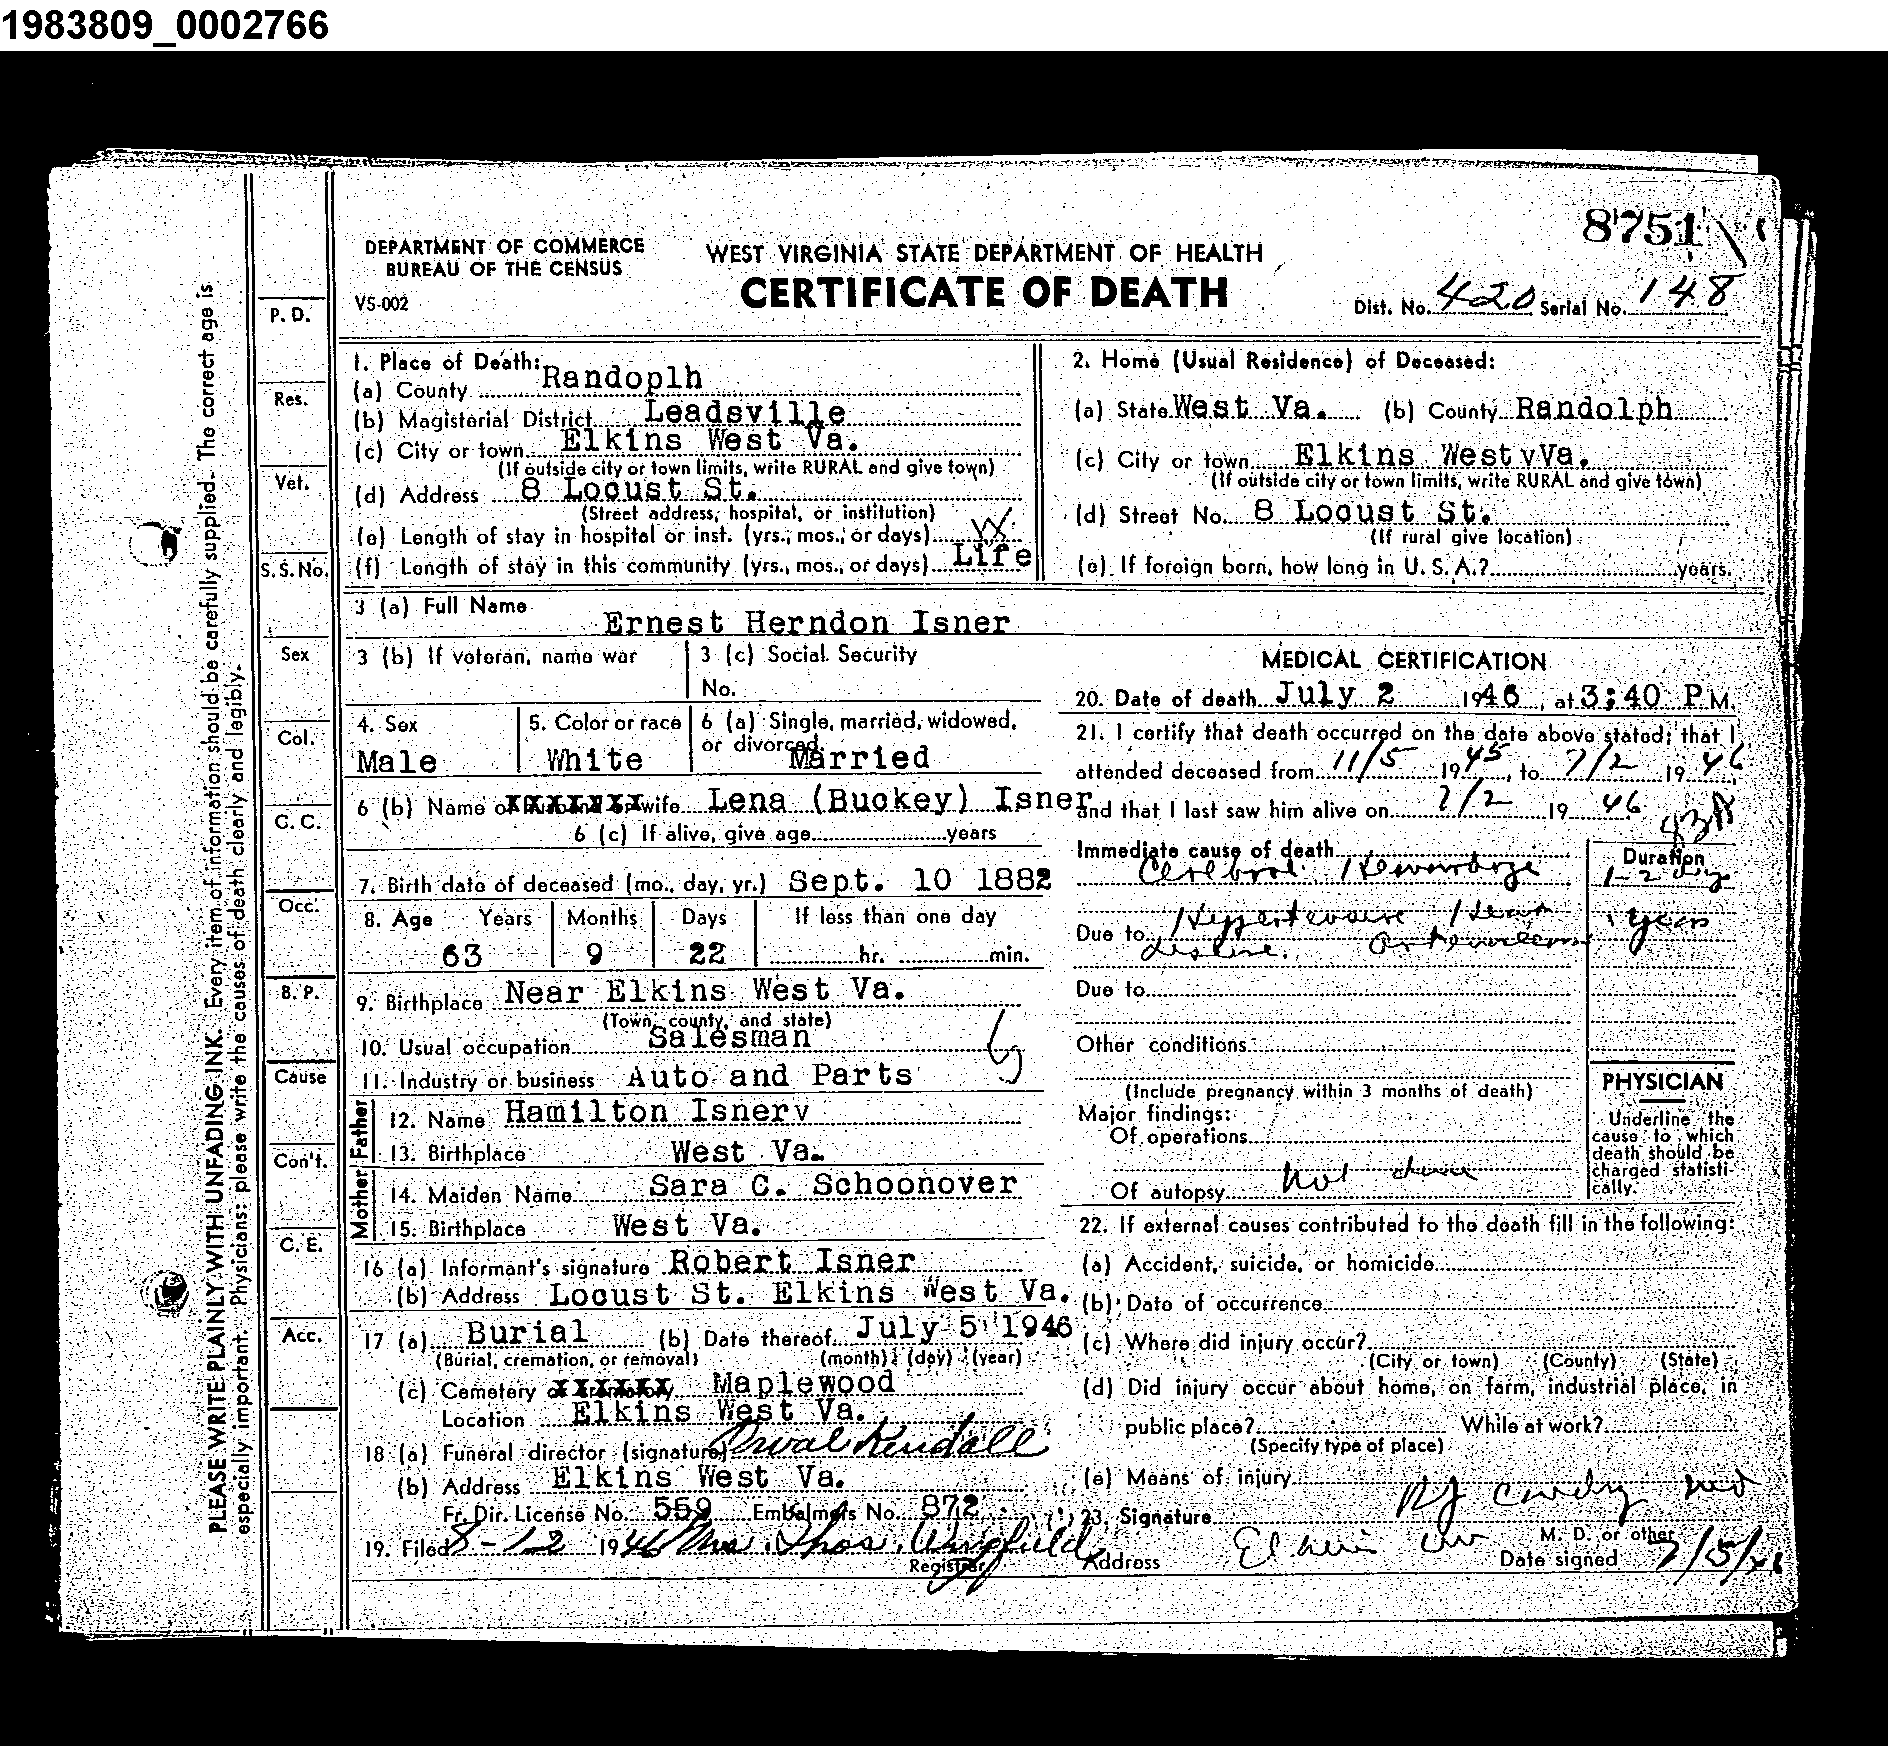 1983809_0002766
8751
DEPARTMENT OF COMMERCE
BUREAU OF THE CENSUS
VS-002
WEST VIRGINIA STATE DEPARTMENT OF HEALTH
CERTIFICATE OF DEATH
Dist. No. 420 Serial No. 148
PLEASE WRITE PLAINLY WITH UNFADING INK. Every item of information should be carefully supplied. The correct age is
especially important. Physicians: please write the causes of death clearly and legibly.
P. D.
Res.
Vet.
S. S. No.
Sex
Col.
C. C.
Occ.
B. P.
Cause
Con't.
C. E.
Acc.
1. Place of Death:
(a) County Randoplh
(b) Magisterial District Leadsville
(c) City or town Elkins West Va.
(If outside city or town limits, write RURAL and give town)
(d) Address 8 Locust St.
(Street address, hospital, or institution)
(e) Length of stay in hospital or inst. (yrs., mos., or days)
(f) Length of stay in this community (yrs., mos., or days) Life
2. Home (Usual Residence) of Deceased:
(a) State West Va. (b) County Randolph
(c) City or town Elkins WestvVa.
(If outside city or town limits, write RURAL and give town)
(d) Street No. 8 Locust St.
(If rural give location)
(e) If foreign born, how long in U. S. A.? years.
3 (a) Full Name Ernest Herndon Isner
3 (b) If veteran, name war
3 (c) Social Security
No.
4. Sex Male
5. Color or race White
6 (a) Single, married, widowed,
or divorced. Married
6 (b) Name of wife Lena (Buckey) Isner
6 (c) If alive, give age years
7. Birth date of deceased (mo., day, yr.) Sept. 10 1882
8. Age Years Months Days If less than one day
63 9 22 hr. min.
9. Birthplace Near Elkins West Va.
(Town, county, and state)
10. Usual occupation Salesman
11. Industry or business Auto and Parts
Father
12. Name Hamilton Isnerv
13. Birthplace West Va.
Mother
14. Maiden Name Sara C. Schoonover
15. Birthplace West Va.
16 (a) Informant's signature Robert Isner
(b) Address Locust St. Elkins West Va.
17 (a) Burial (b) Date thereof July 5 1946
(Burial, cremation, or removal) (month) (day) (year)
(c) Cemetery or crematory Maplewood
Location Elkins West Va.
18 (a) Funeral director (signature) Orval Kendall
(b) Address Elkins West Va.
Fr. Dir. License No. 559 Embalmers No. 872
19. Filed 8-12 1946 Mrs. Thos. Wingfield
Registrar
MEDICAL CERTIFICATION
20. Date of death July 2 1946, at 3;40 P M.
21. I certify that death occurred on the date above stated; that I
attended deceased from 11/5 1945, to 7/2 1946
and that I last saw him alive on 7/2 1946
Immediate cause of death
Cerebral Hemorrhage
Duration
1-2 days
Due to Hypertensive Heart
disease.
years
Due to
Other conditions
(Include pregnancy within 3 months of death)
Major findings:
Of operations
Of autopsy not done
PHYSICIAN
Underline the
cause to which
death should be
charged statisti-
cally.
22. If external causes contributed to the death fill in the following:
(a) Accident, suicide, or homicide
(b) Date of occurrence
(c) Where did injury occur?
(City or town) (County) (State)
(d) Did injury occur about home, on farm, industrial place, in
public place? While at work?
(Specify type of place)
(e) Means of injury
23. Signature
M. D. or other
Address Elkins
Date signed 7/5/46